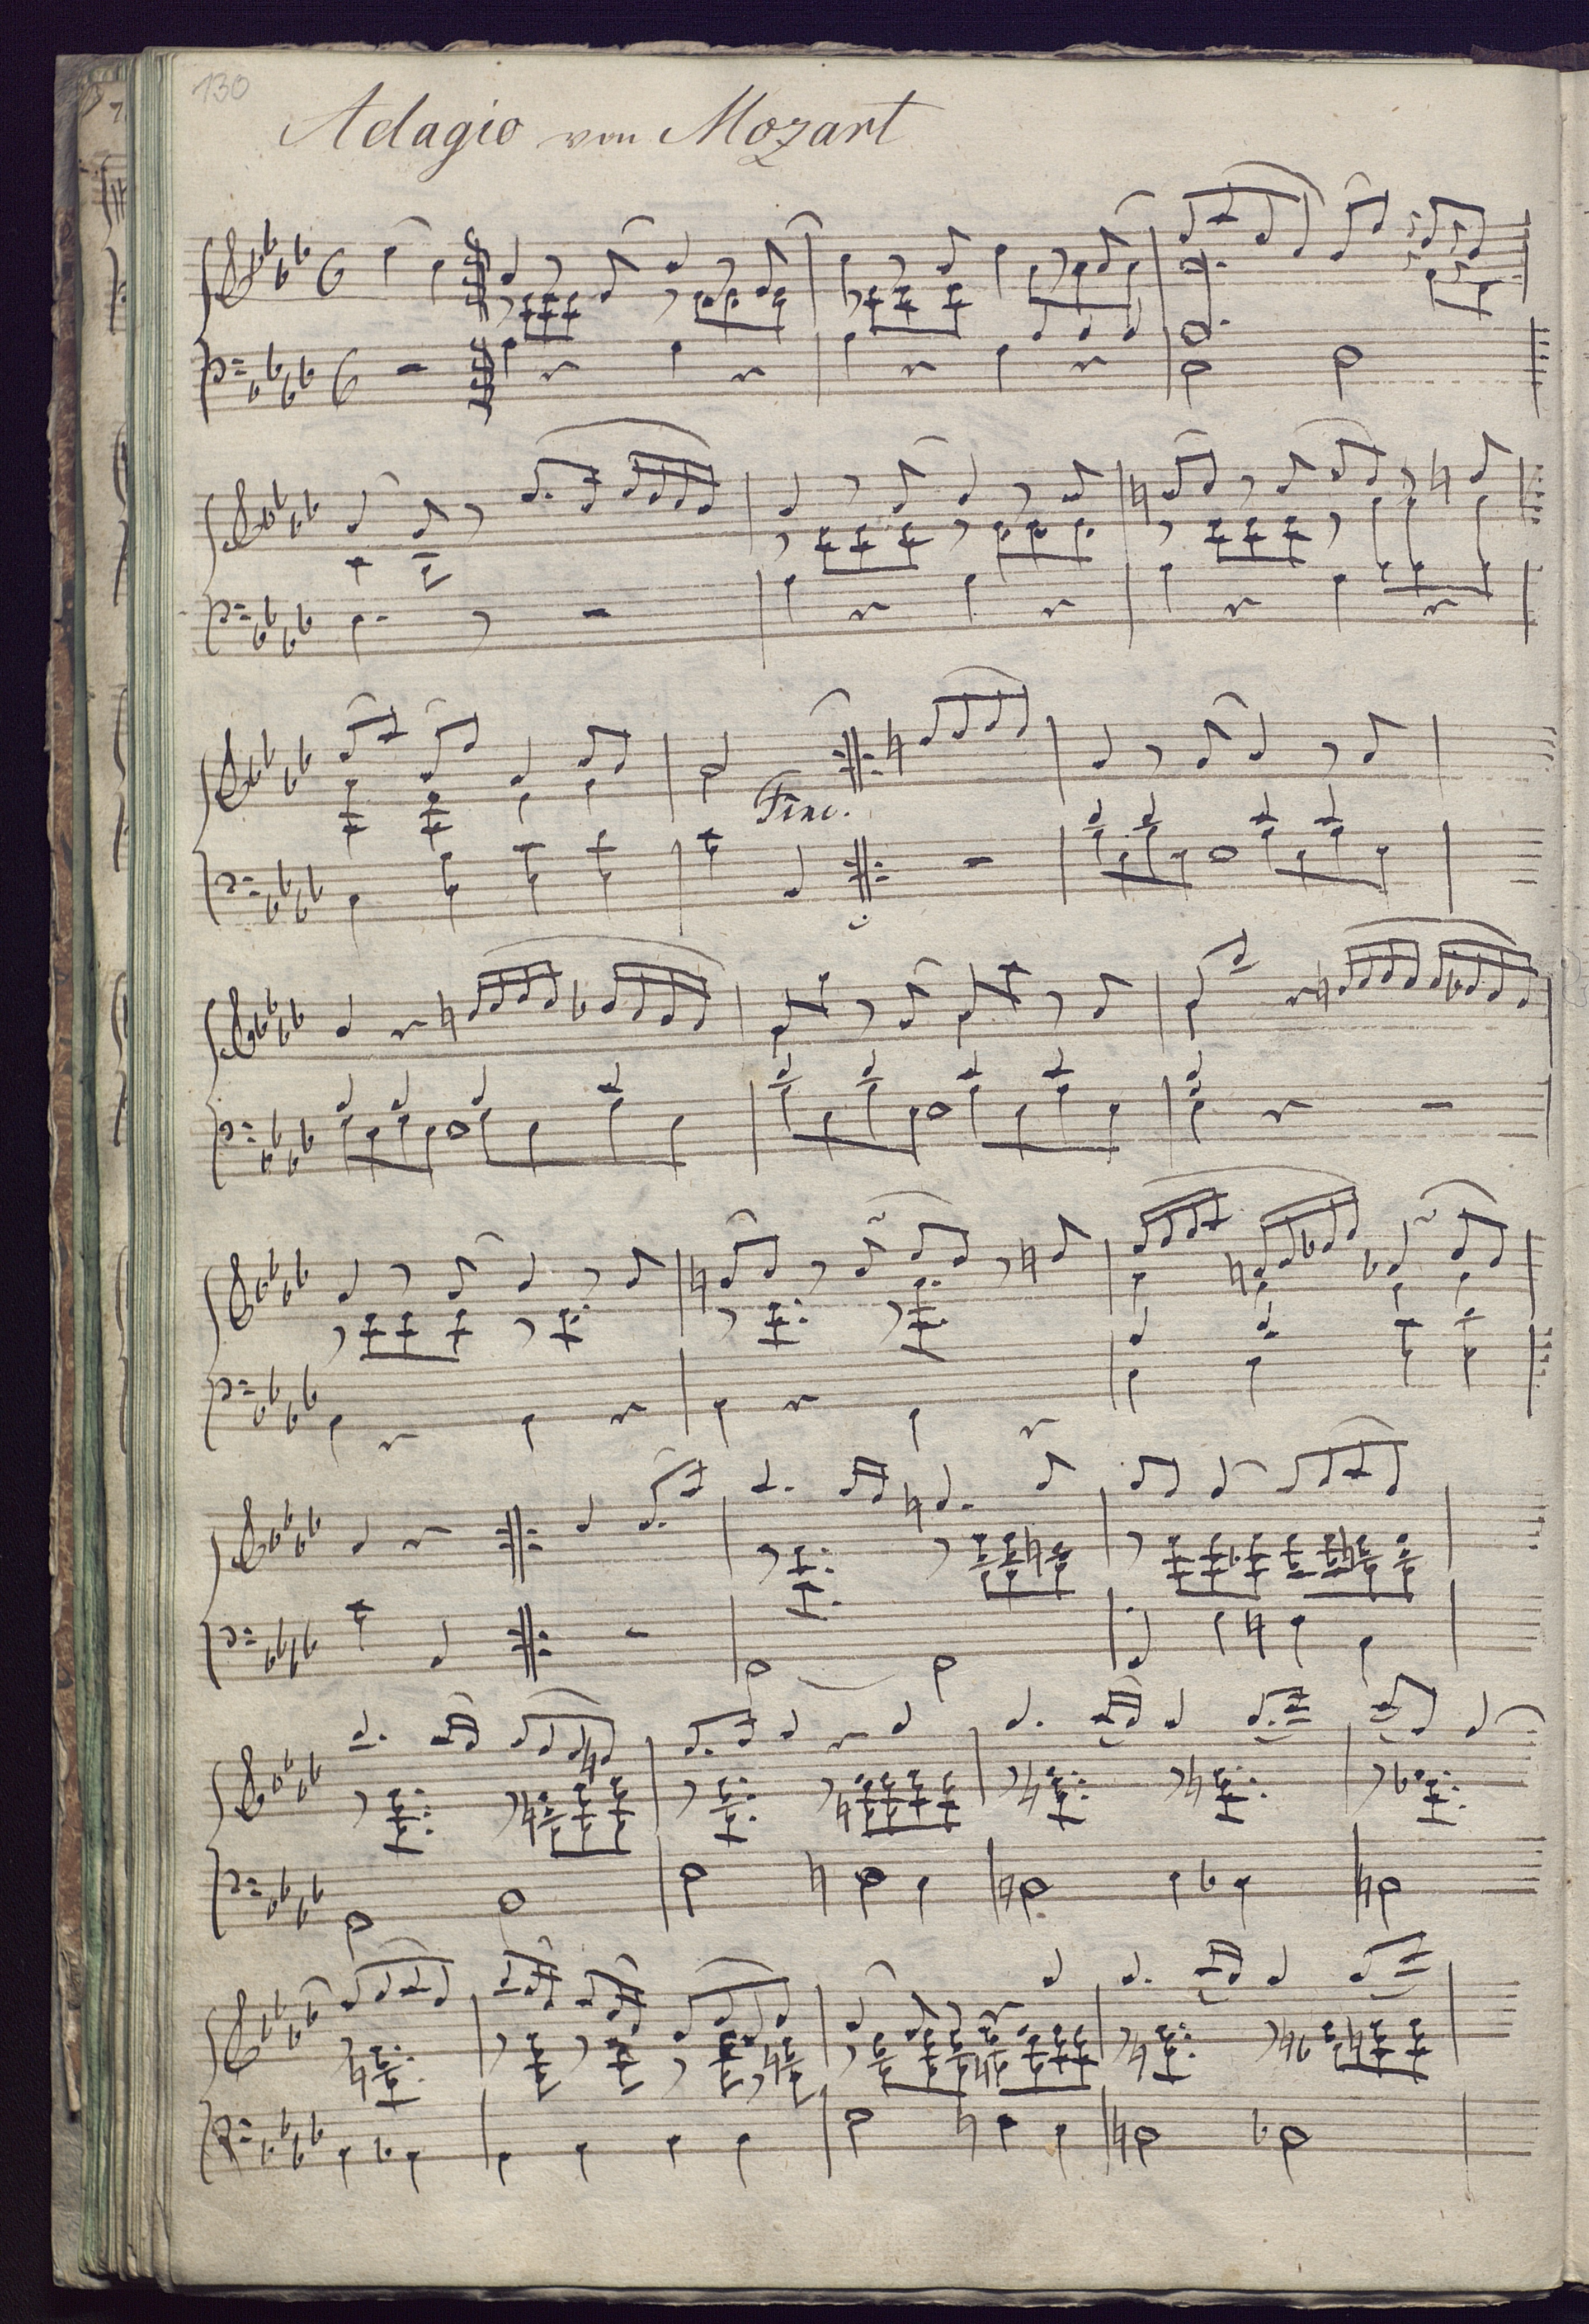 130
Adagio von Mozart
Fine.